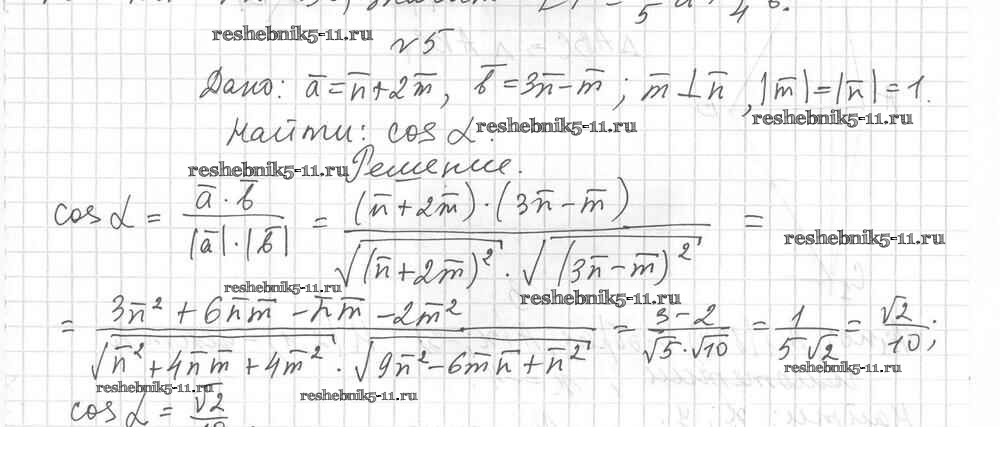 LT = /5 a + /4 b.
reshebnik5-11.ru
№5
Дано: a̅ = n̅ + 2m̅, b̅ = 3n̅ − m̅; m̅ ⊥ n̅, |m̅| = |n̅| = 1.
reshebnik5-11.ru
Найти: cos α.
reshebnik5-11.ru
reshebnik5-11.ru
Решение.
cos α = (a̅ · b̅) / (|a̅| · |b̅|) = ((n̅ + 2m̅) · (3n̅ − m̅)) / (√(n̅ + 2m̅)² · √(3n̅ − m̅)²) =
reshebnik5-11.ru
reshebnik5-11.ru
reshebnik5-11.ru
= (3n̅² + 6n̅m̅ − n̅m̅ − 2m̅²) / (√(n̅² + 4n̅m̅ + 4m̅²) · √(9n̅² − 6m̅n̅ + n̅²)) = (3 − 2) / (√5 · √10) = 1 / (5√2) = √2 / 10;
reshebnik5-11.ru
reshebnik5-11.ru
reshebnik5-11.ru
cos α = √2 / 10